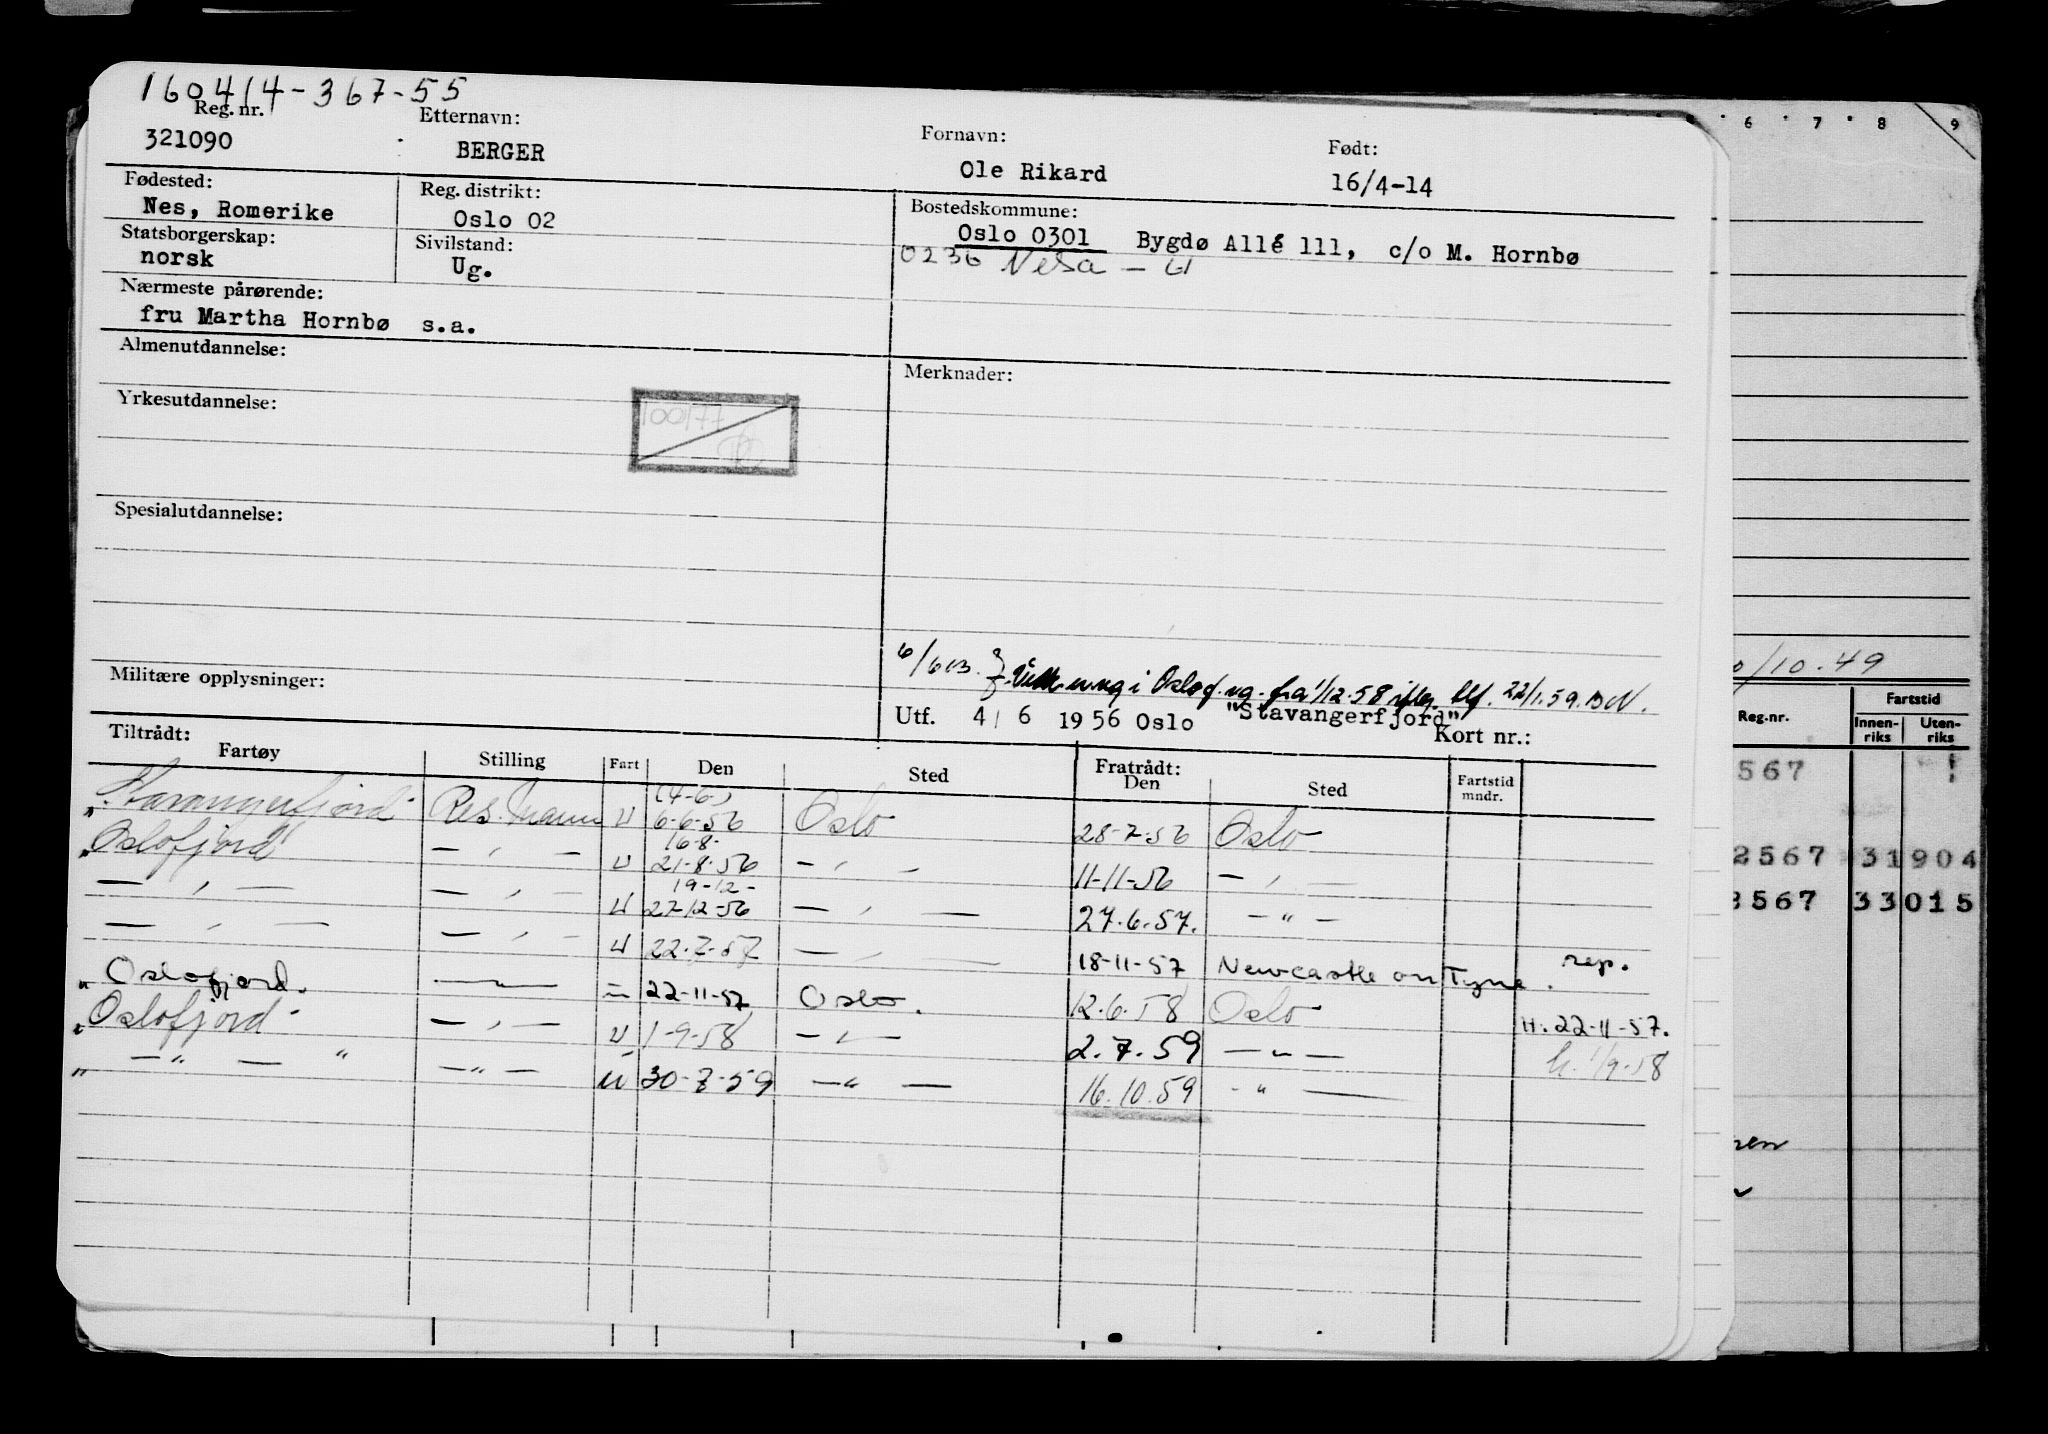 160414-367-55
Reg. nr. Etternavn: Fornavn: Født:
321090 BERGER Ole Rikard 16/4-14
Fødested: Reg. distrikt: Bostedskommune:
Nes, Romerike Oslo 02 Oslo 0301 Bygdø Allé 111, c/o M. Hornbø
Statsborgerskap: Sivilstand: 0236 Nesa - U
norsk Ug.
Nærmeste pårørende:
fru Martha Hornbø s.a.
Almenutdannelse: Merknader:
Yrkesutdannelse:
100/77
Spesialutdannelse:
i Oslof. ug. fra 1/12-58 22/1.59.
Militære opplysninger:
Utf. 4/ 6 1956 Oslo "Stavangerfjord"
Kort nr.:
Tiltrådt: Fratrådt:
Fartøy Stilling Fart Den Sted Den Sted Fartstid mndr.
(4-6)
"Stavangerfjord" Res. mann U 6-6-56 Oslo 28-7-56 Oslo
16-8-
"Oslofjord" — " — U 21-8-56 — " — 11-11-56 — " —
19-12-
— " — — " — U 27-12-56 — " — 27.6.57. — " —
— " — — " — U 22-7-57 — " — 18-11-57 Newcastle on Tyne. rep.
"Oslofjord. — " — — 22-11-57 Oslo. 12.6.58 Oslo H. 22-11-57.
"Oslofjord — " — U 1-9-58 — " — 2.7.59 — " — h. 1/9-58
" — " — " — " — U 30-7-59 — " — 16.10.59 — " —
6 7 8 9
/10.49
Reg.nr. Fartstid
Innen-riks Uten-riks
567
2567 31904
3567 33015